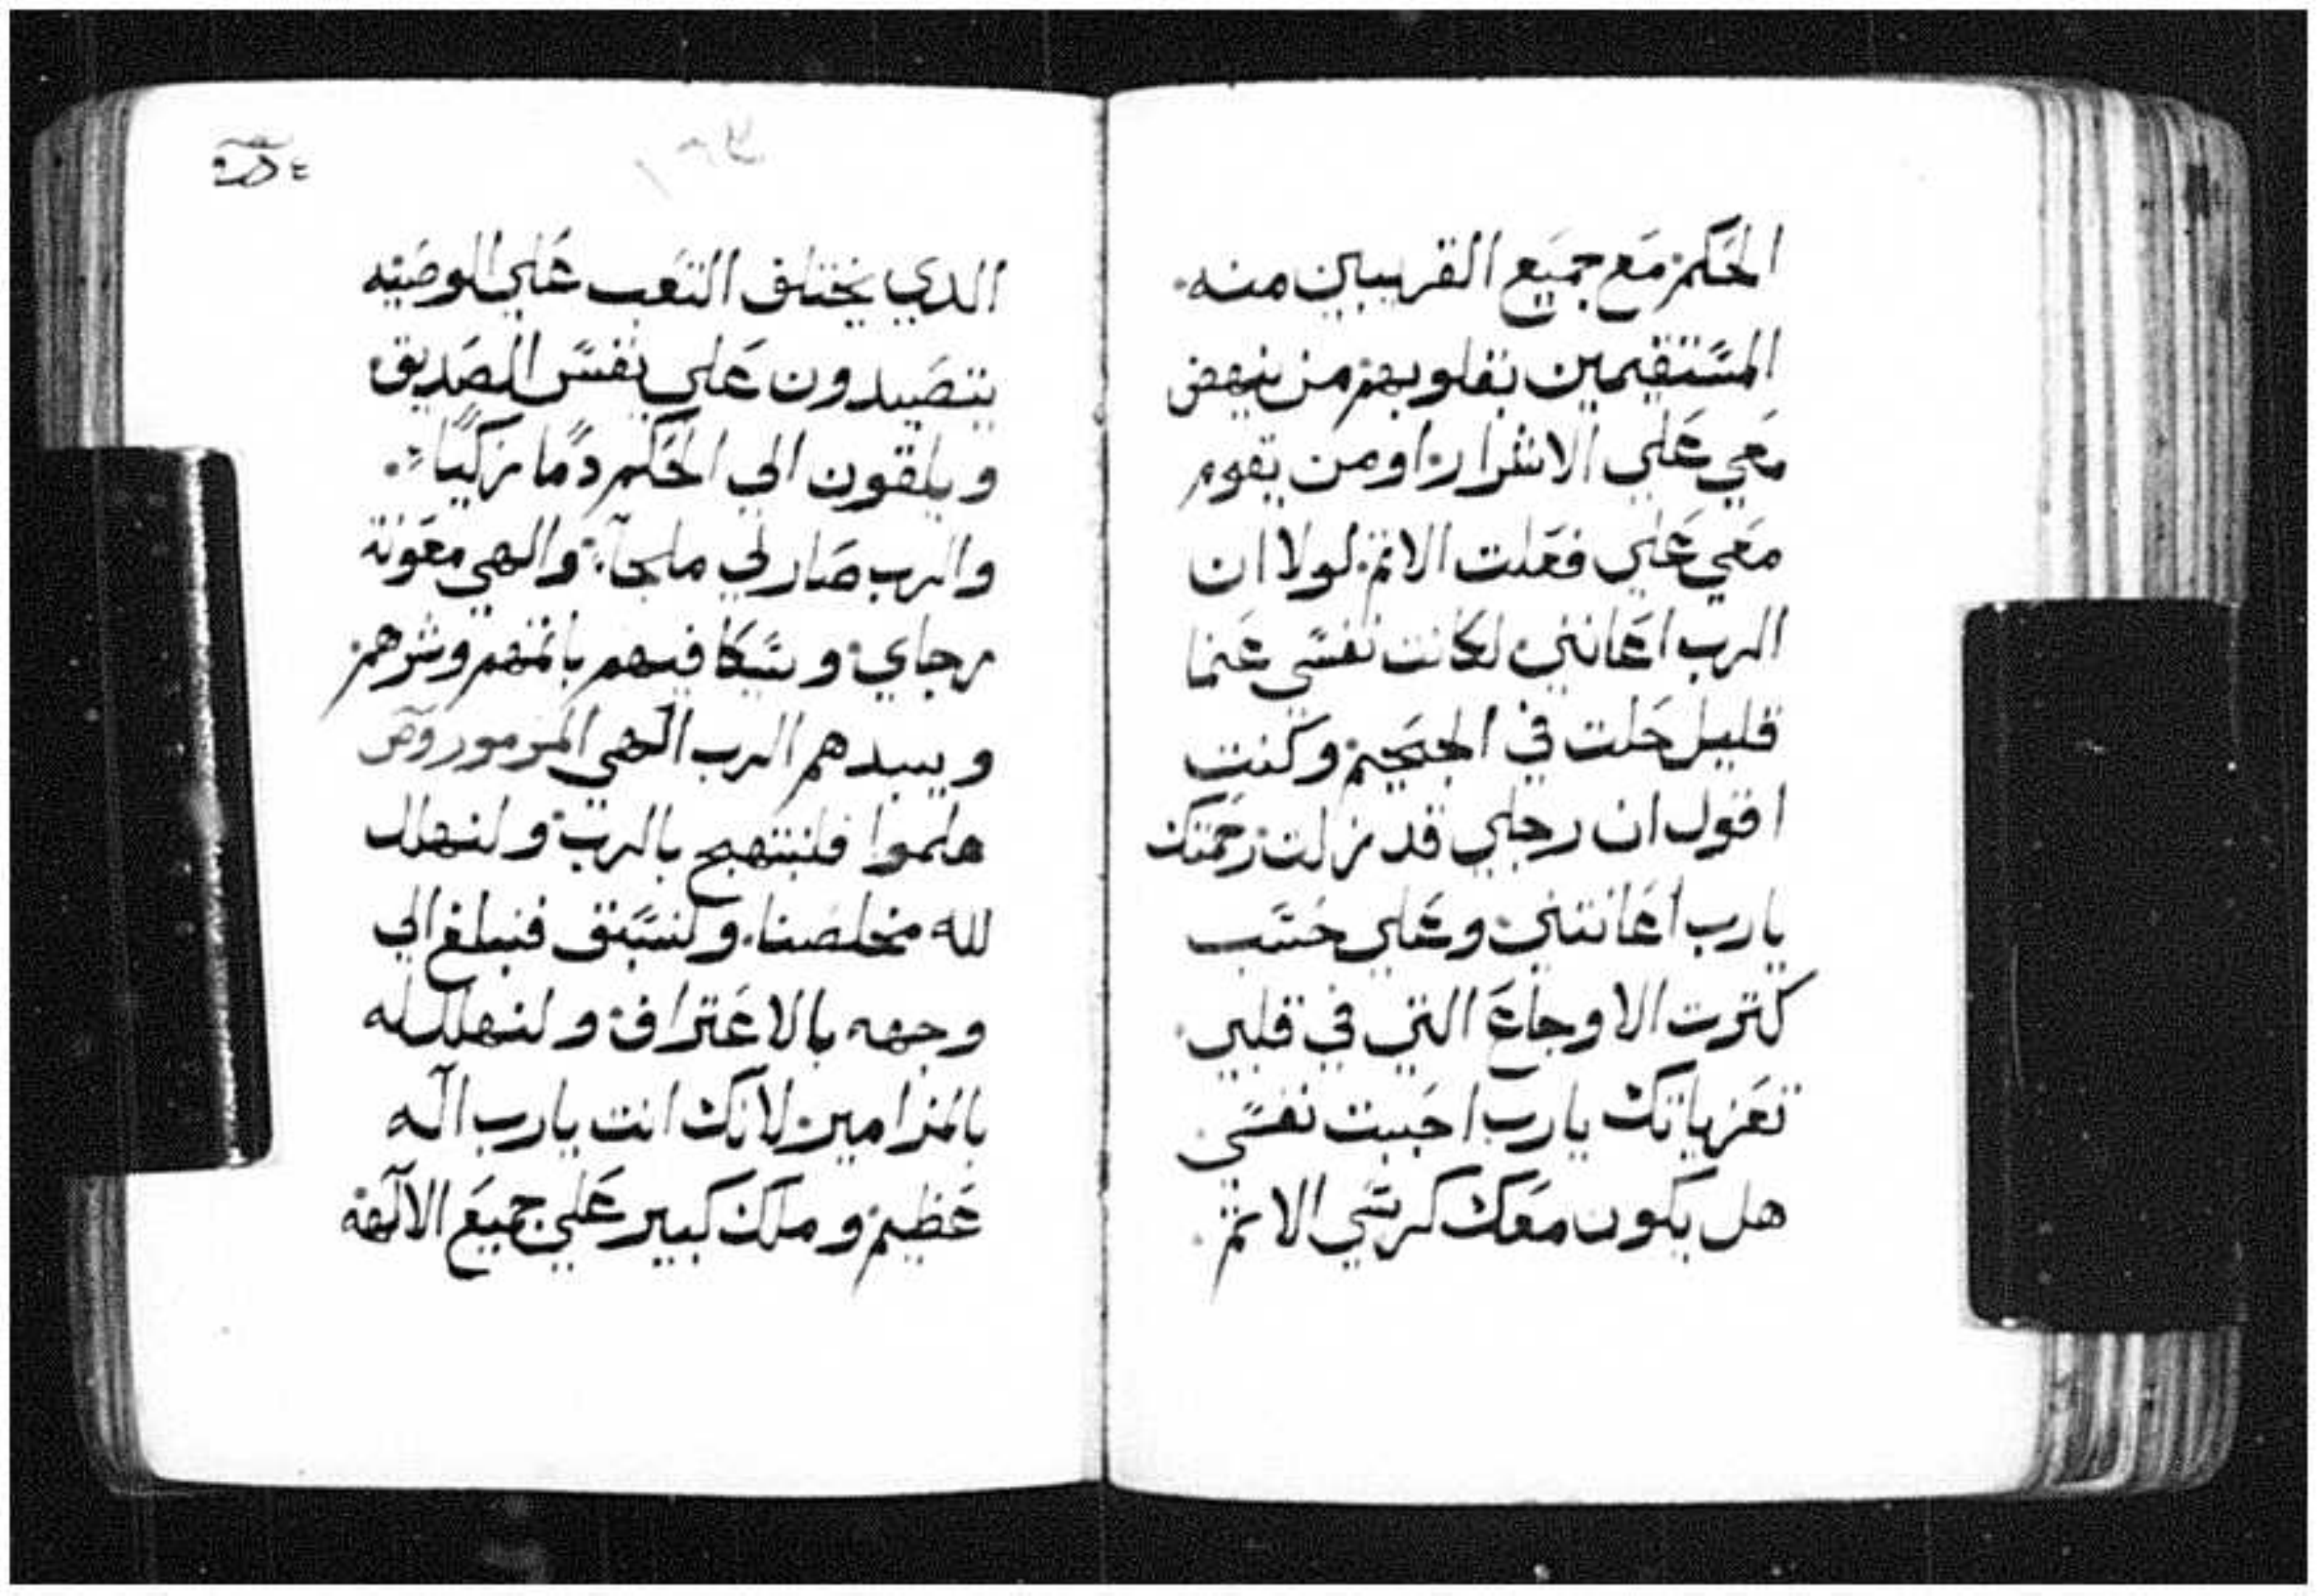 الحكم مع جميع القريبين منه.
المستقيمين بقلوبهم من ينهض
معي علي الاشرار او من يقوم
معي علي فعلت الاثم. لولا ان
الرب اعانني لكانت نفسي عنما
قليل حلت في الجحيم وكنت
اقول ان رجلي قد زلت رحمتك
يارب اعانتني وعلي حسب
كثرت الاوجاع التي في قلبي.
تعزياتك يارب احببت نفسي.
هل يكون معك كرسي الاثم.
الدي يختلق التعب علي الوصيه
يتصيدون علي نفس الصديق
ويلقون الي الحكم دمًا زكيًا
والرب صار لي ملجآ والهي معونة
رجاي ويكافيهم باثمهم وشرهم
ويبيدهم الرب الهي المزمور
هلموا فلنبتهج بالرب ولنهلل
لله مخلصنا. ولنستبق فنبلغ الي
وجهه بالاعتراف ولنهلل له
بالمزامير لانك انت يارب اله
عظيم وملك كبير علي جميع الالهه